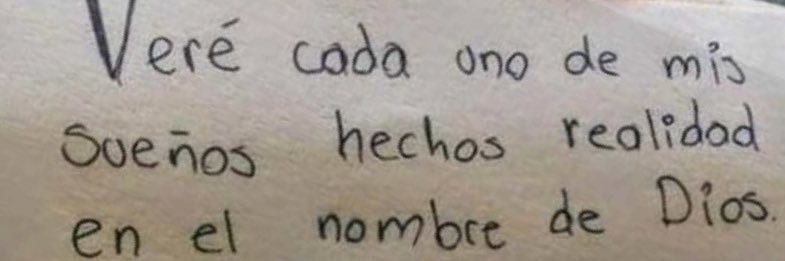 Veré cada uno de mis
sueños hechos realidad
en el nombre de Dios.